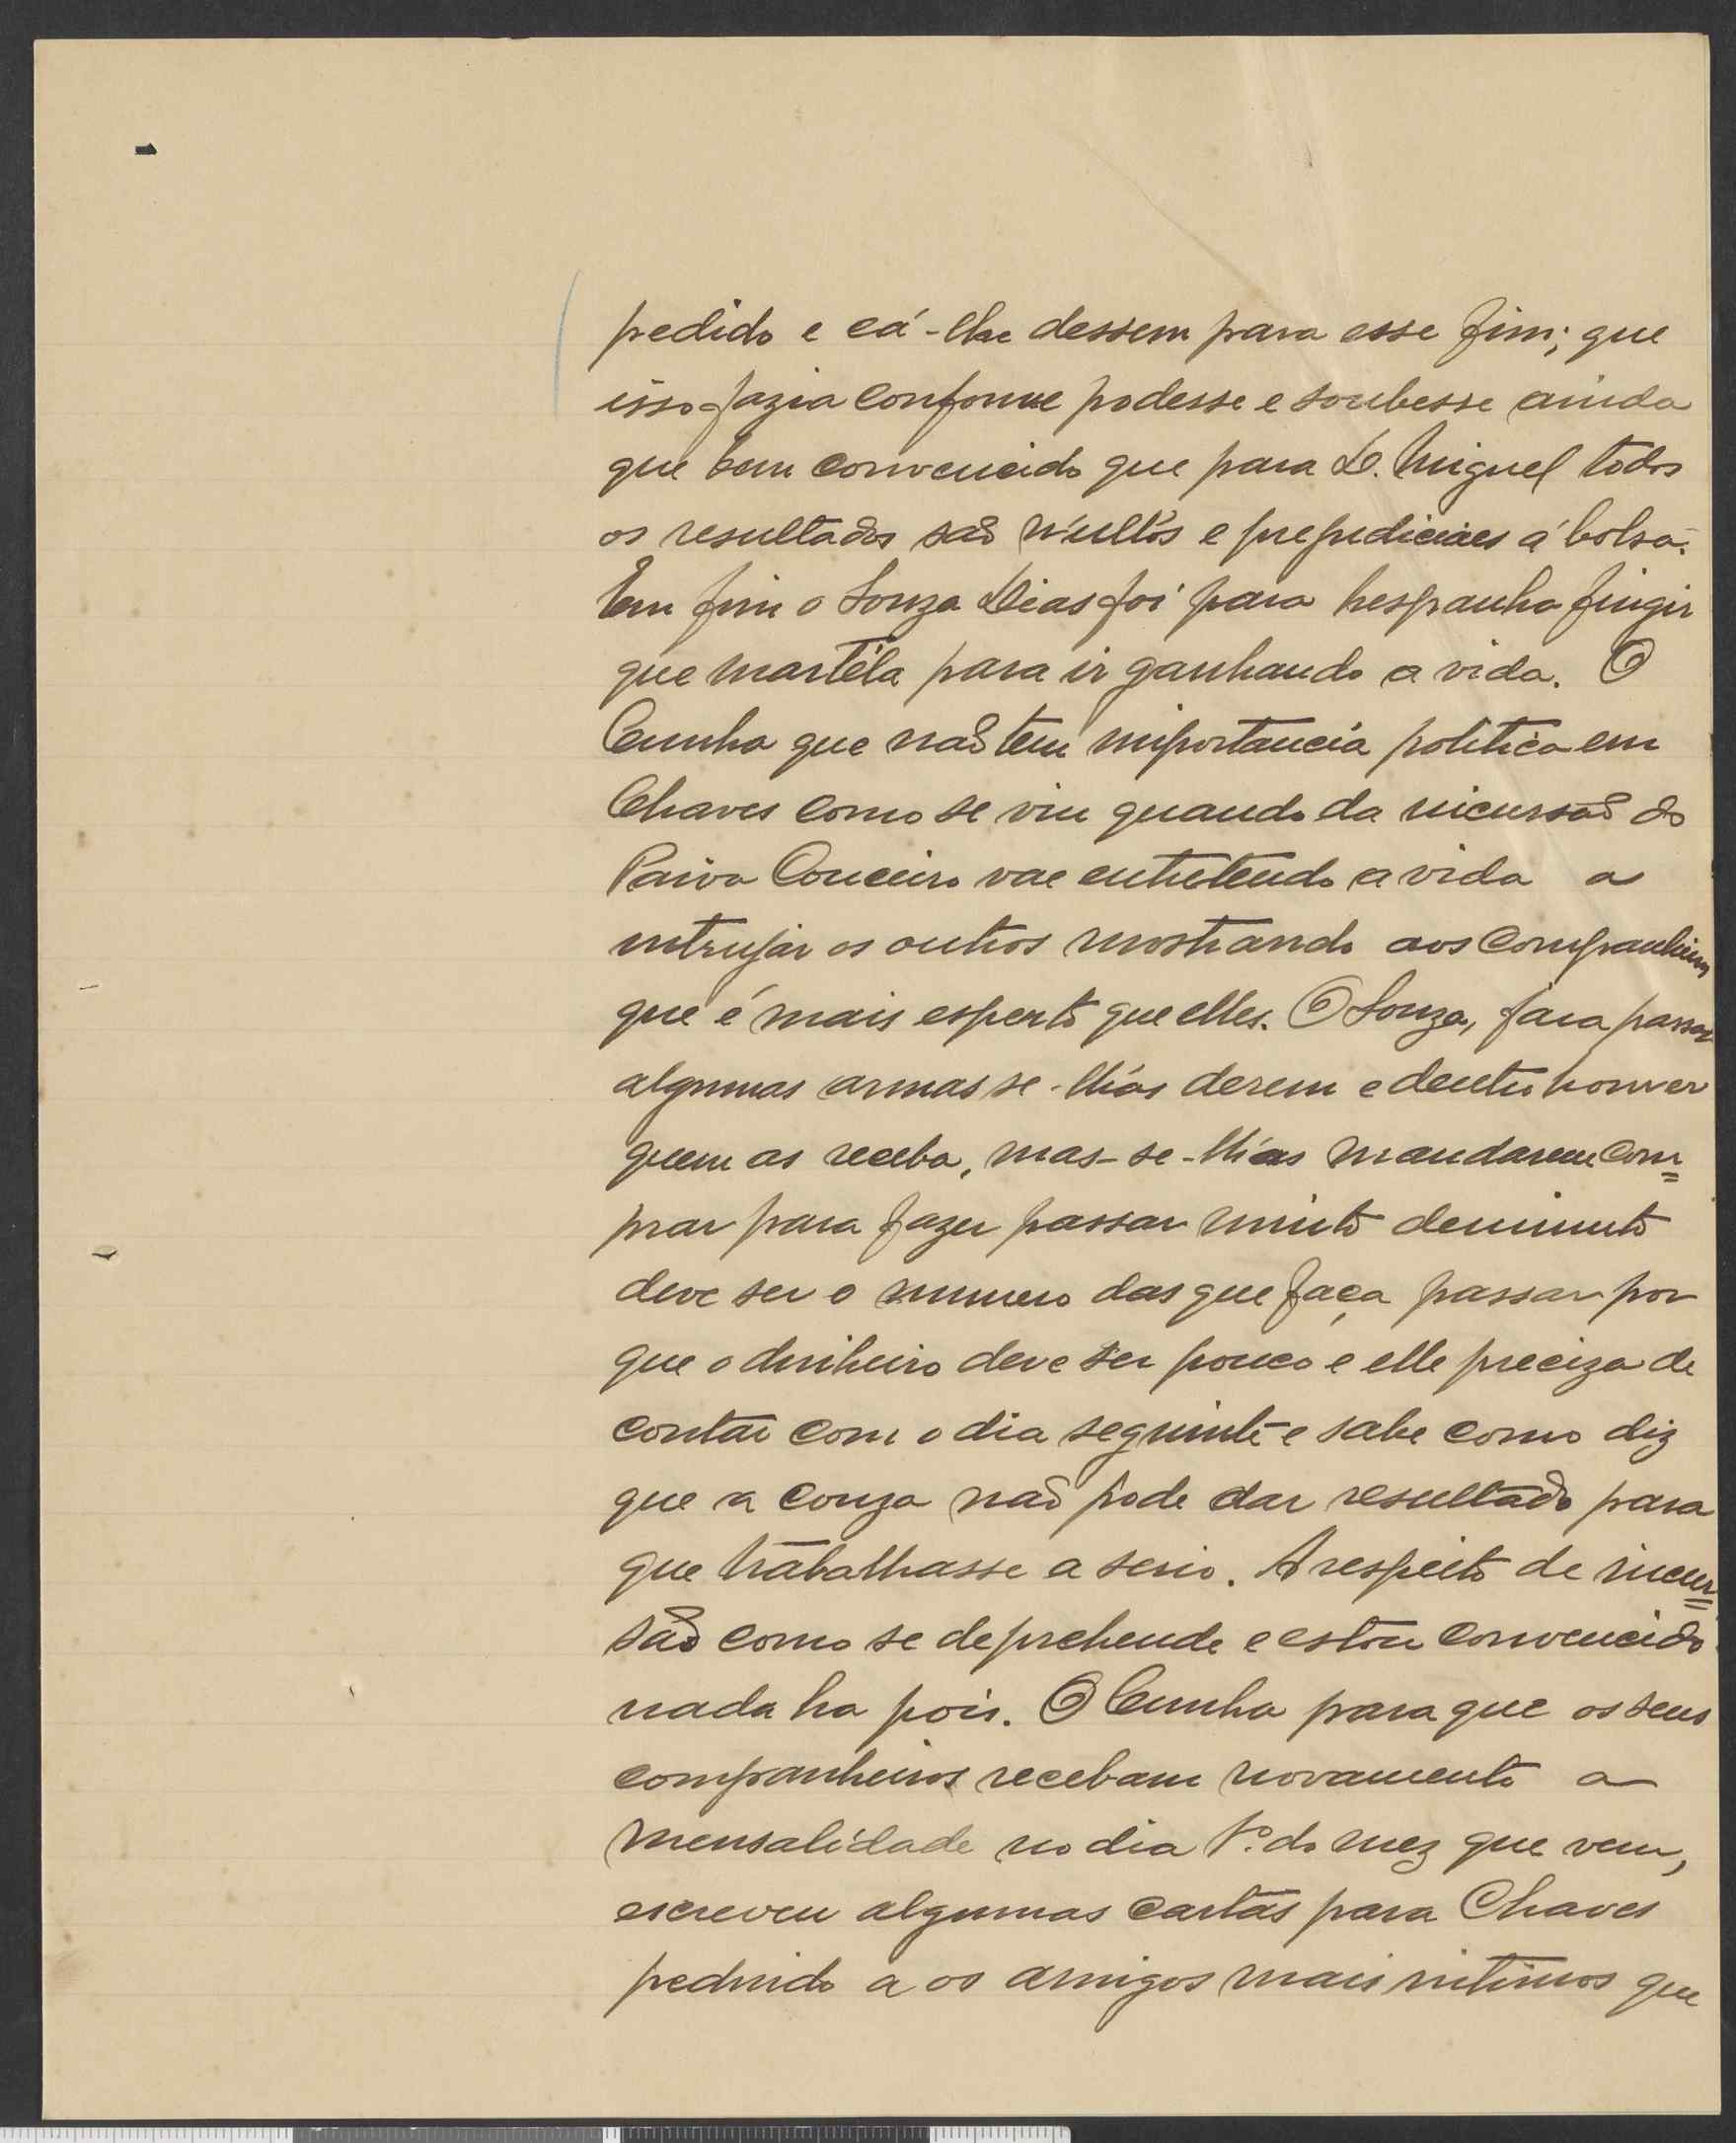 pedido e cá-lhe dessem para esse fim; que
isso fazia conforme podesse e soubesse ainda
que bem convencido que para D. Miguel todos
os resultados são núllos e prejudiciaes á bolsa.
Em fim o Souza Dias foi para hespanha fingir
que martéla para ir ganhando a vida. O
Cunha que não tem importancia politica em
Chaves como se viu quando da incursão do
Paiva Couceiro vae entretendo a vida a
intrujar os outros mostrando aos companheiros
que é mais esperto que elles. O Souza, fara passar
algumas armas se-lhás derem e dentro houver
quem as receba, mas-se-lhás mandarem com=
prar para fazer passar muito deminuto
deve ser o numero das que faça passar por
que o dinheiro deve ser pouco e elle preciza de
contar com o dia seguinte e sabe como diz
que a couza não pode dar resultado para
que trabalhasse a serio. A respeito de incur=
são como se deprehende e estou convencido
nada ha pois. O Cunha para que os seus
companheiros recebam novamente a
mensalidade no dia 1º. do mez que vem,
escreveu algumas cartas para Chaves
pedindo a os amigos mais intimos que